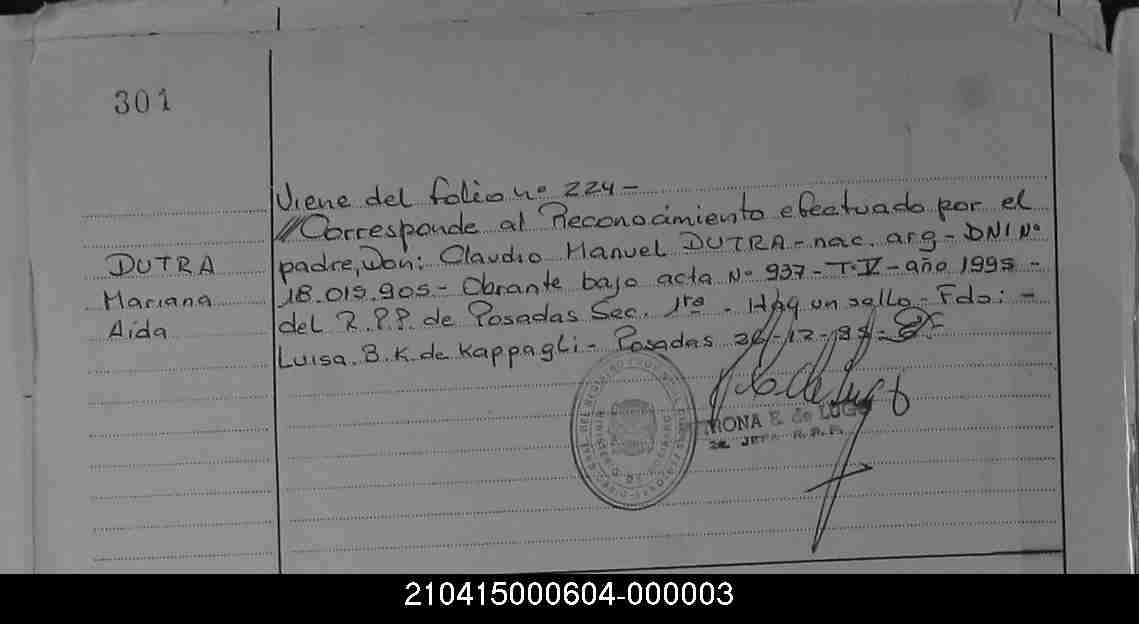 301
Viene del folio nº 224-
//Corresponde al Reconocimiento efectuado por el
padre, Don: Claudio Manuel DUTRA-nac. arg-DNI Nº
18.019.905-Obrante bajo acta Nº 937-T.V-año 1995-
del R.P.P. de Posadas Sec. 1ra. Hay un sello-Fdo:-
Luisa.B.K.de Kappagli- Posadas 26-12-
DUTRA
Mariana
Aida
E. de LUGO
JEFA R.P.P.
210415000604-000003